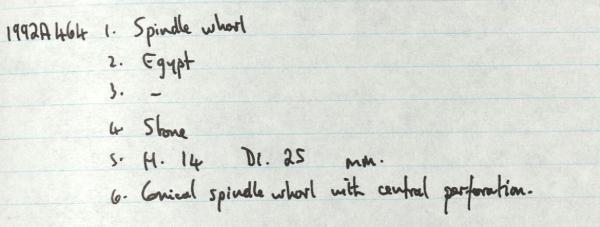 1992A464 1. Spindle whorl
2. Egypt
3. -
4. Stone
5. H. 14 Di. 25 mm.
6. Conical spindle whorl with central perforation.